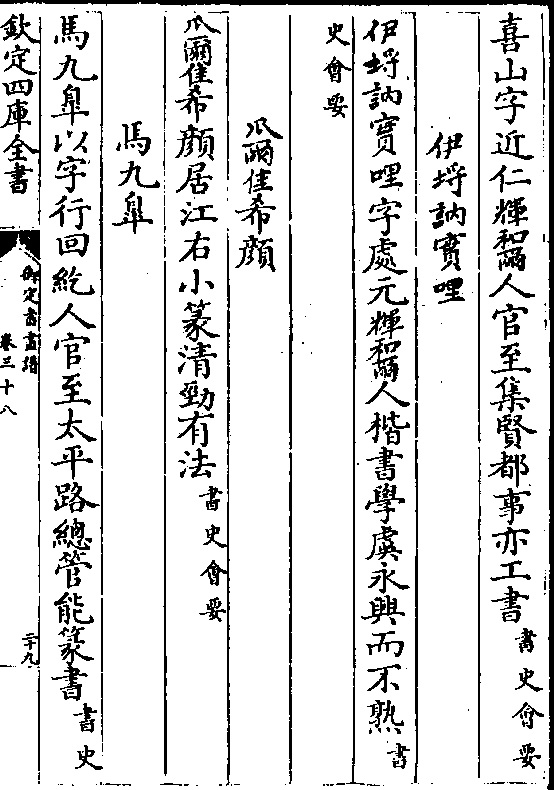 喜山字近仁輝和爾人官至集賢都事亦工書書史會要
伊埒訥實哩
伊埒訥實哩字處元輝和爾人楷書學虞永興而不熟書
史會要
瓜爾佳希顔
瓜爾佳希顔居江右小篆清勁有法書史會要
馬九臯
馬九臯以字行回紇人官至太平路總管能篆書書史
欽定四庫全書
御定書畫譜
卷三十八
二十九